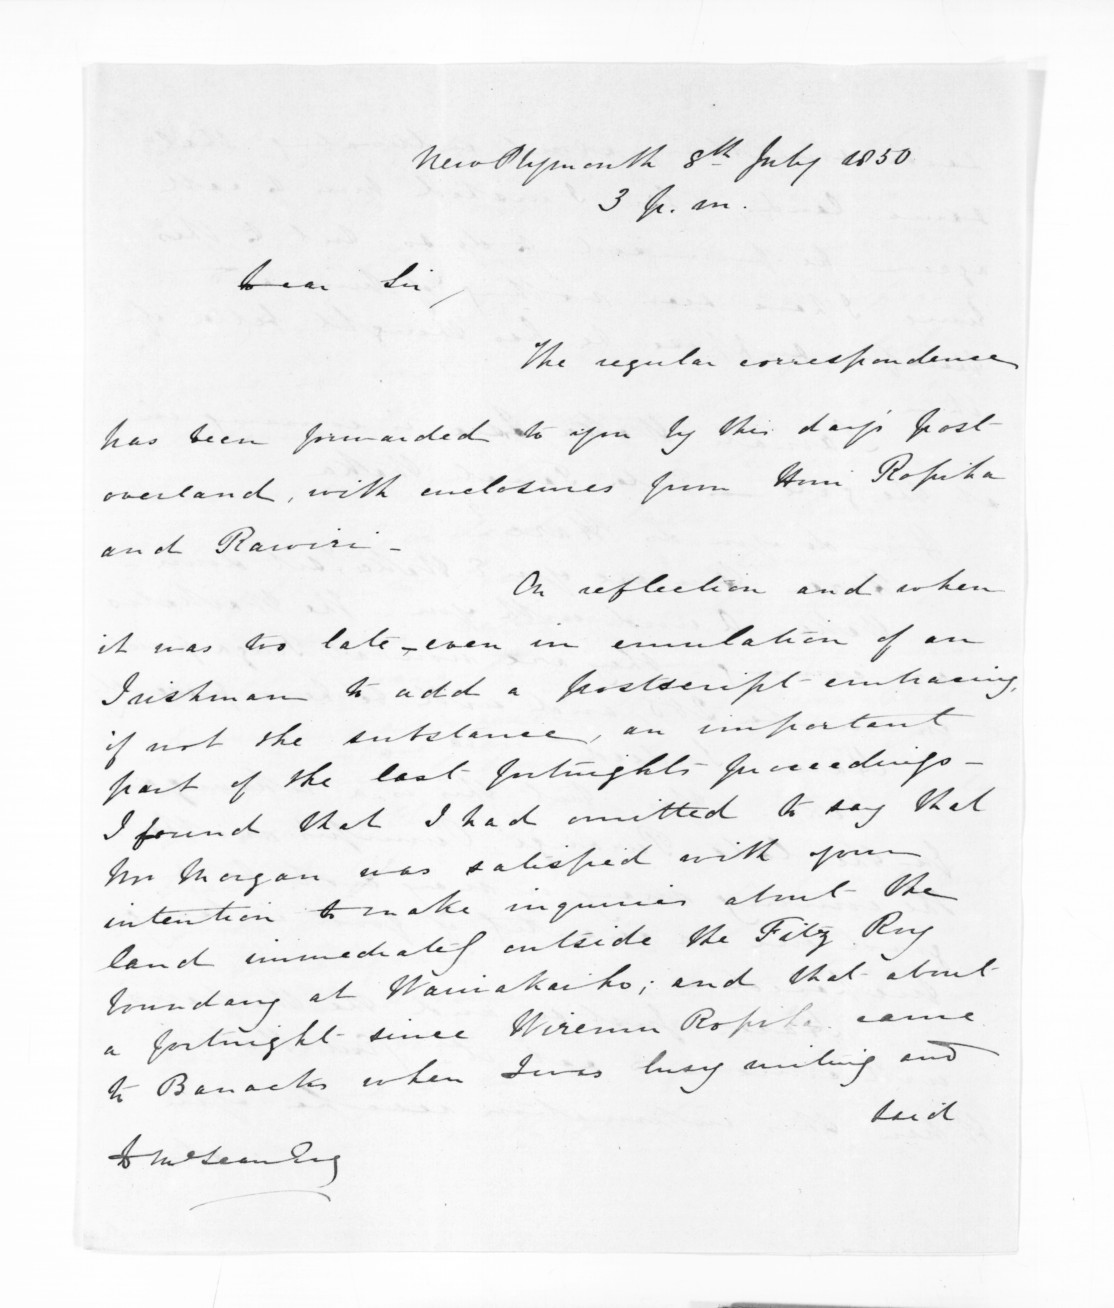 New Plymouth 8th July 1850
3 p. m.
Dear Sir,
The regular correspondence
has been forwarded to you by this day's post
overland, with enclosures from Honi Ropiha
and Rawiri -
On reflection and when
it was too late, even in emulation of an
Irishman to add a postscript embracing,
if not the substance, an important
part of the last fortnight's proceedings -
I found that I had omitted to say that
Mr Morgan was satisfied with your
intention to make inquiries about the
land immediately outside the Fitz Roy
boundary at Waiwakaiho; and that about
a fortnight since Wiremu Ropiha came
to Barracks when I was busy writing and
said
D McLean Esq